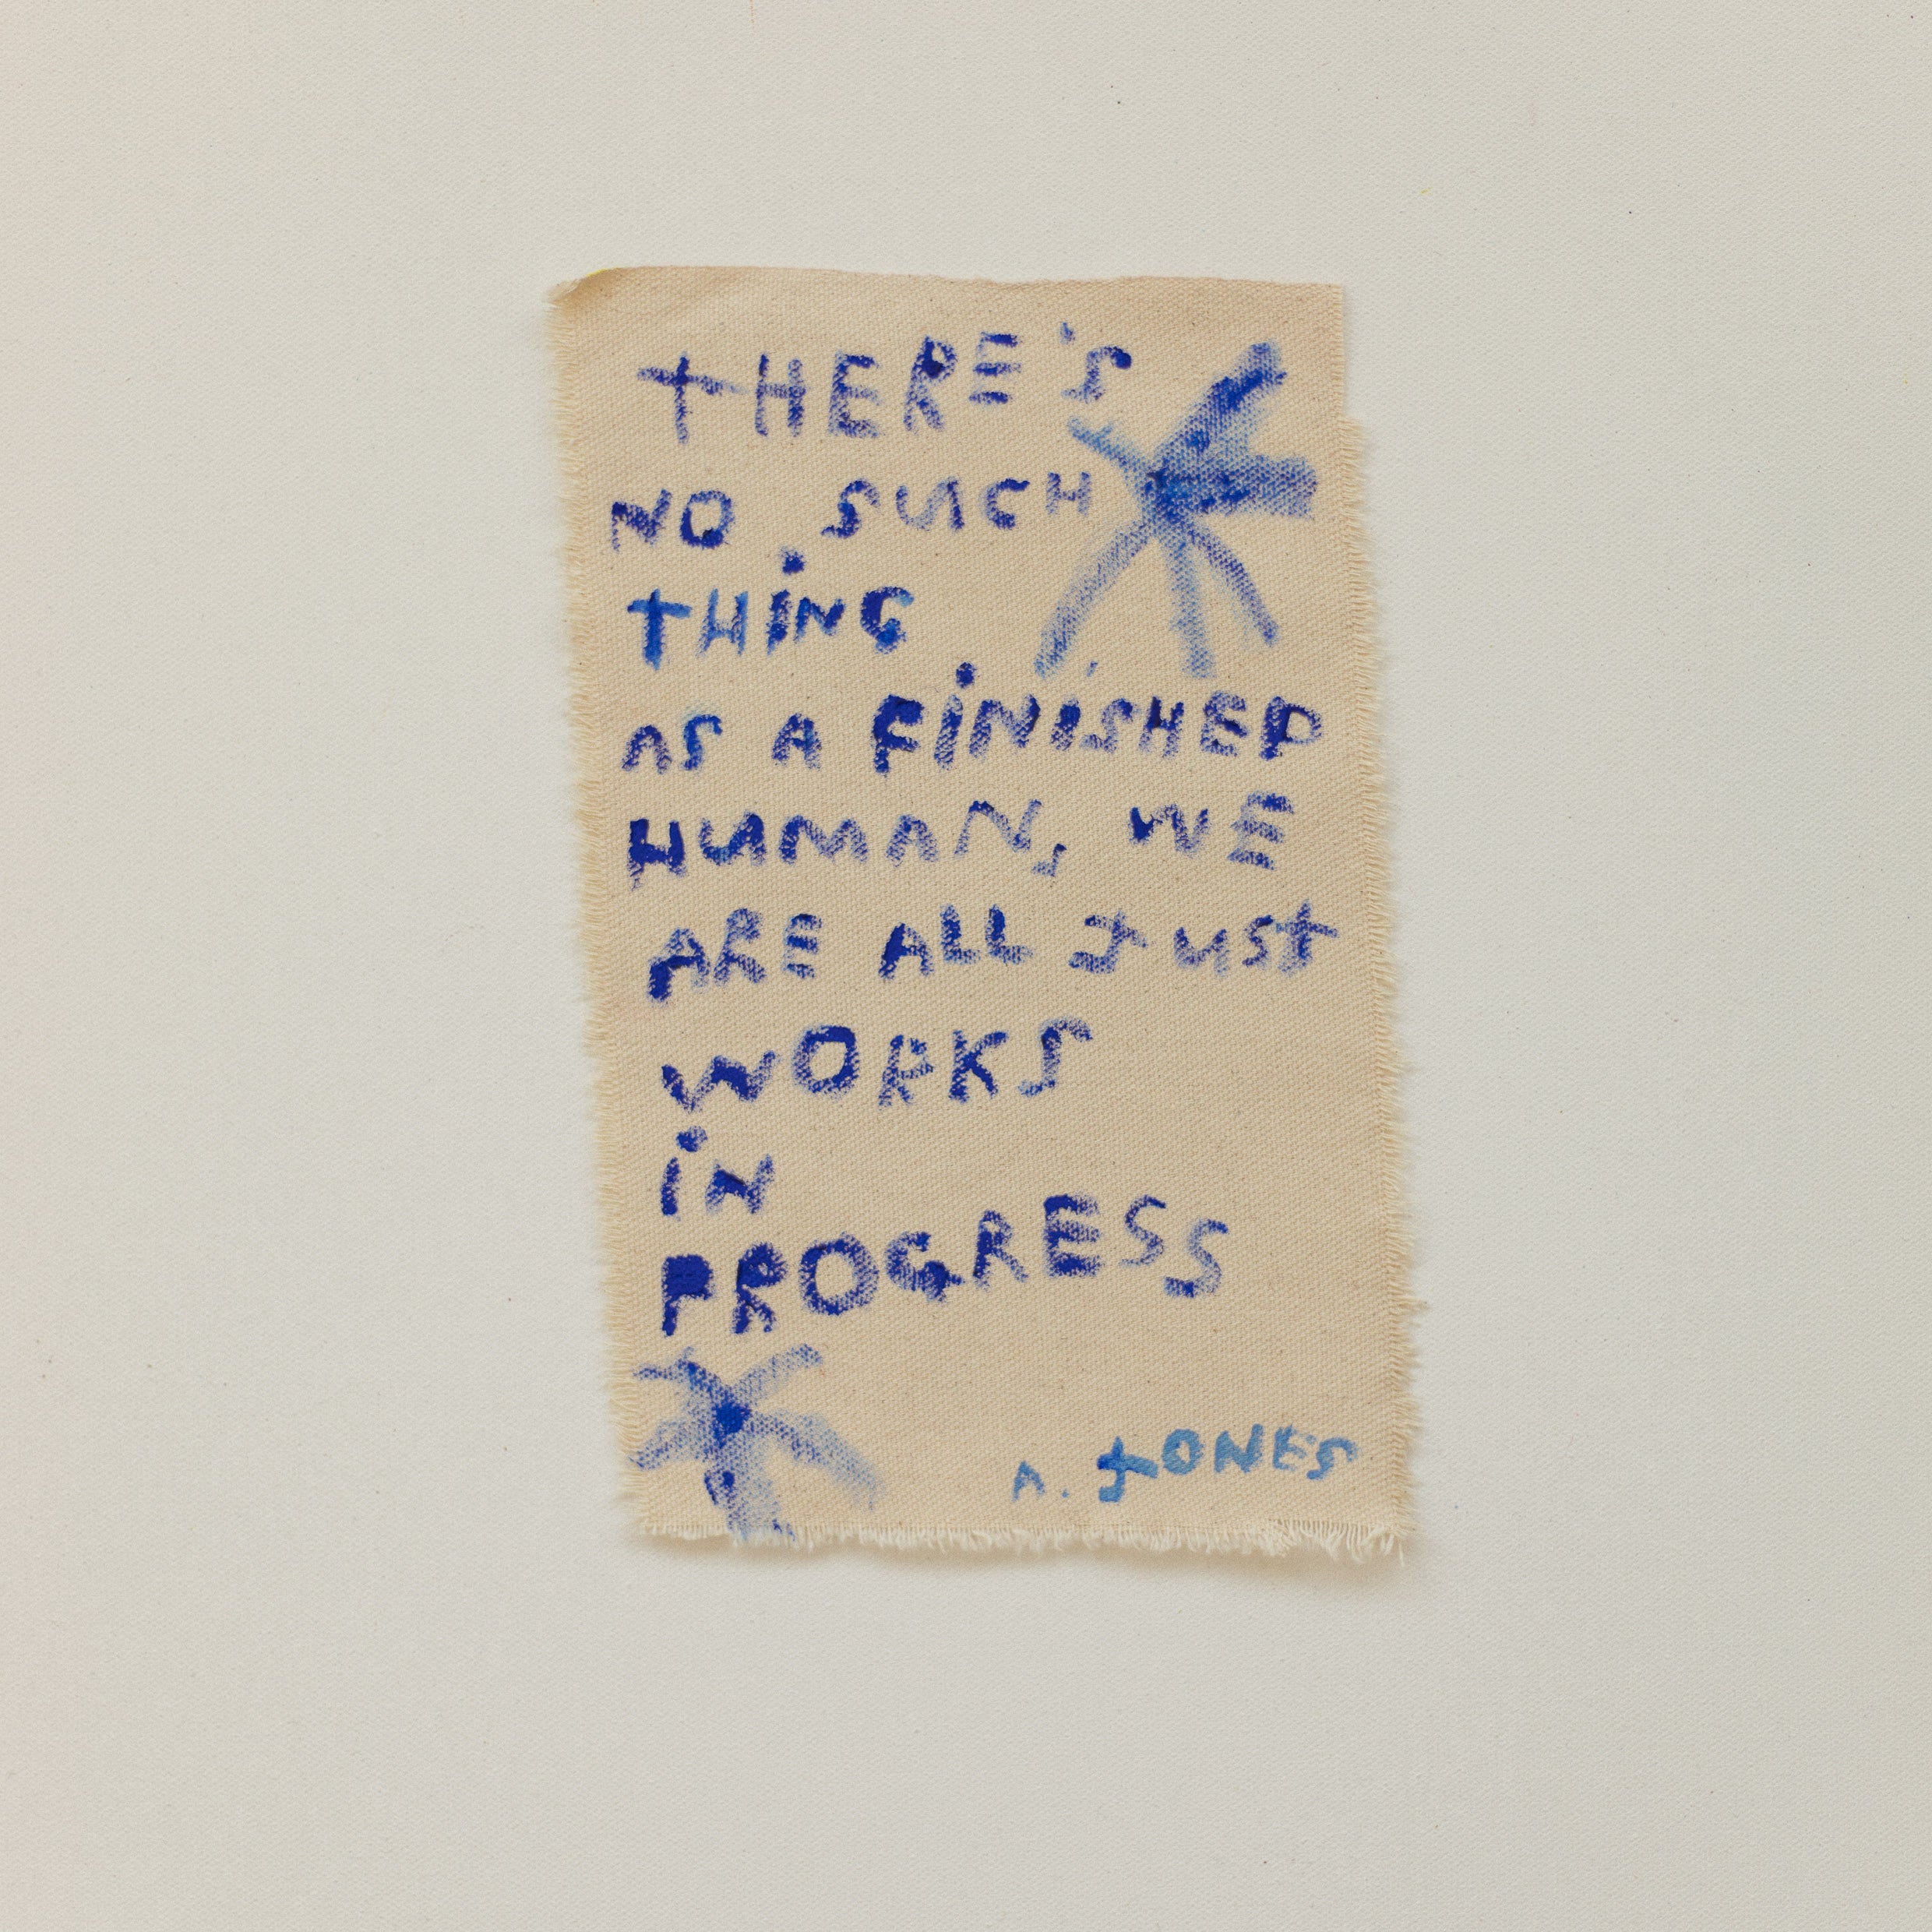 THERE'S
NO SUCH
THiNG
AS A FiNiSHED
HUMAN, WE
ARE ALL JUST
WORKS
iN
PROGRESS
A. JONES